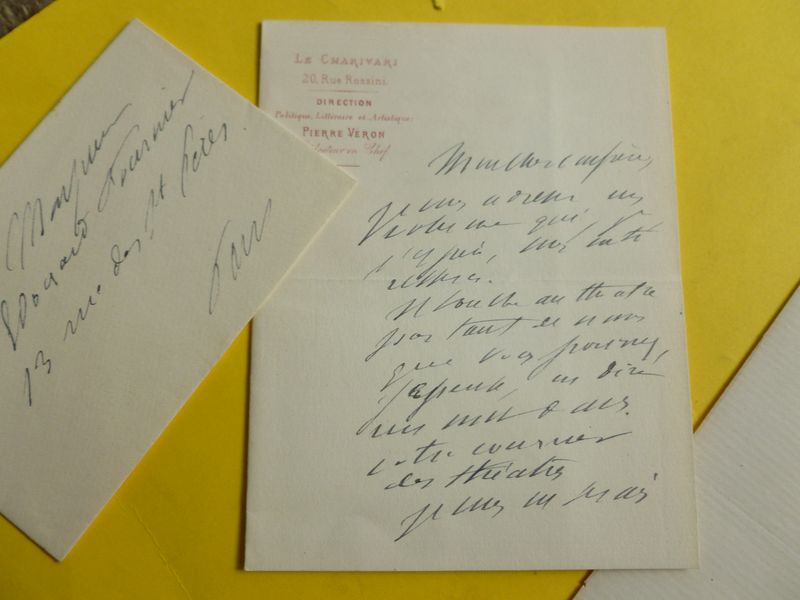 Monsieur
Edouard Fournier
13 rue des Sts Pères
Paris
LE CHARIVARI
20, Rue Rossini.
DIRECTION
Politique, Littéraire et Artistique:
PIERRE VÉRON
Rédacteur en Chef
Mon cher confrère,
je vous adresse un
volume qui, je
l'espère, vous
Il touche au théatre
par tant de noms
que vous pourrez,
je pense, en dire
un mot dans
votre courrier
des théatres
je vous en serais